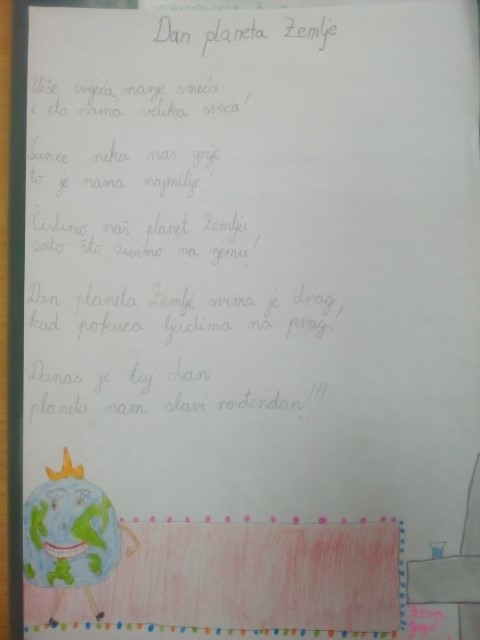 Dan planeta Zemlje
Više cvijeća, manje smeća
i eto nama velika sreća!
Sunce neka nas grije
to je nama najmilije!
Čestitamo naš planet Zemlju
zato što živimo na njemu!
Dan planeta Zemlje svima je drag,
kad pokuca ljudima na prag.
Danas je taj dan
planeta nam slavi rođendan!!!